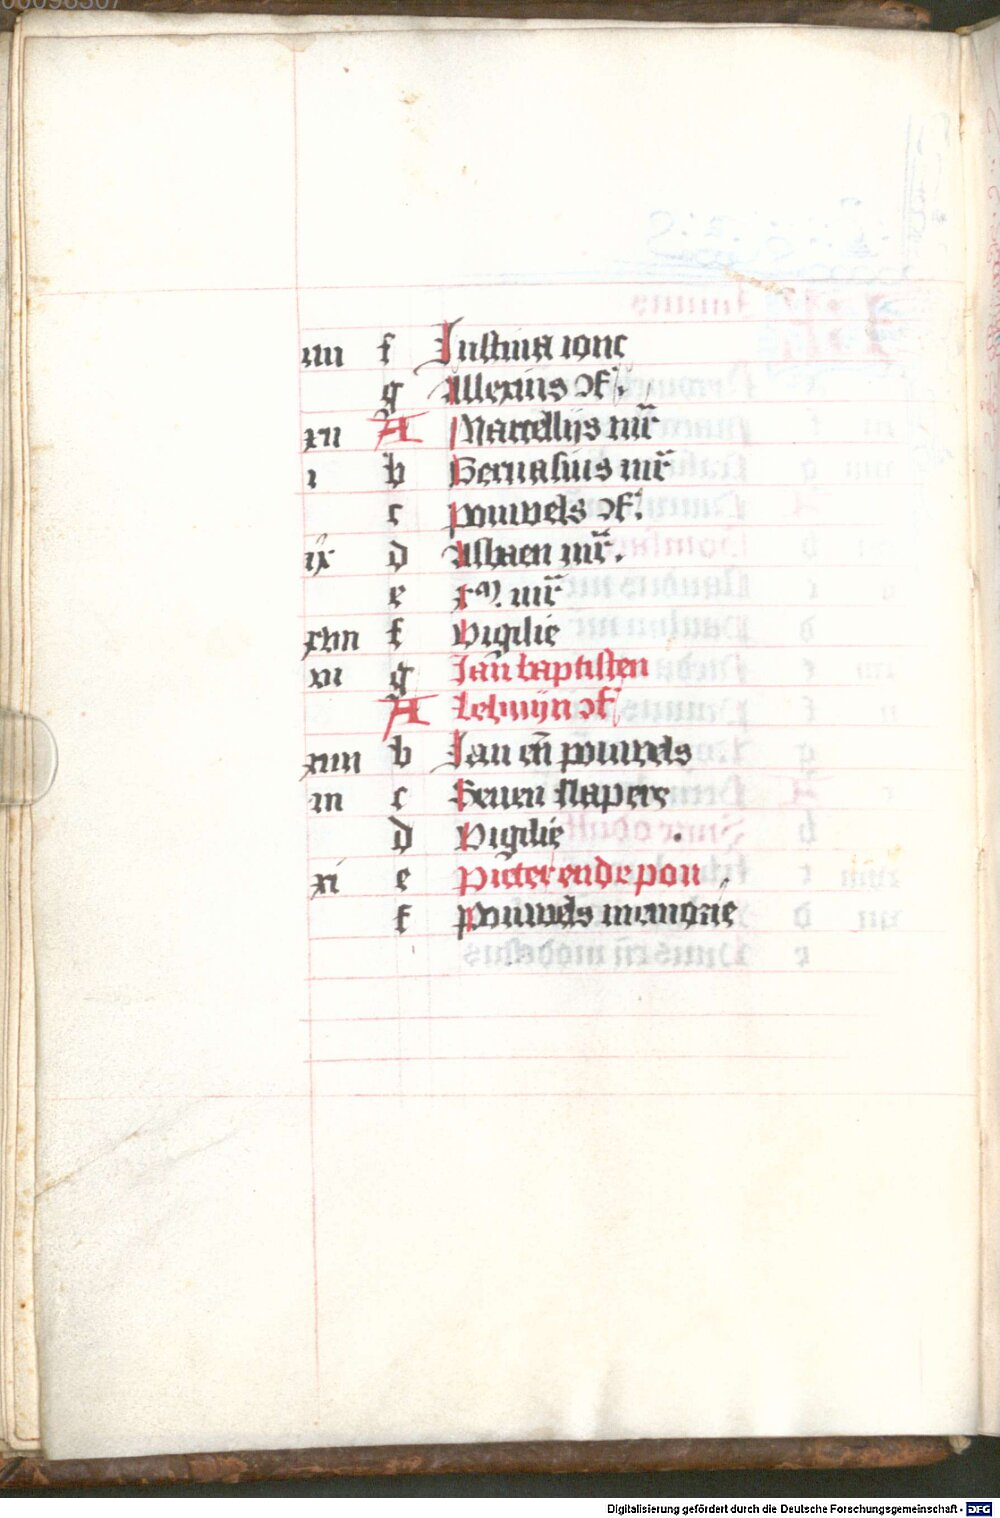 00098307
iiii f Iustina ionc
g Allexius ɔf.
xii A Marcellijs mr̃
i b Geruasius mr̃
c pouwels ɔf.
ix d Albaen mr̃.
e xᵐ. mr̃
xvii f Vigilie
vi g Jan baptisten
A Lebuijn ɔf
xiiii b Ian en̄ pouwels
iii c Seuen slapers
d Vigilie
xi e pieter ende pou
f pouwels memorie
Digitalisierung gefördert durch die Deutsche Forschungsgemeinschaft - DFG